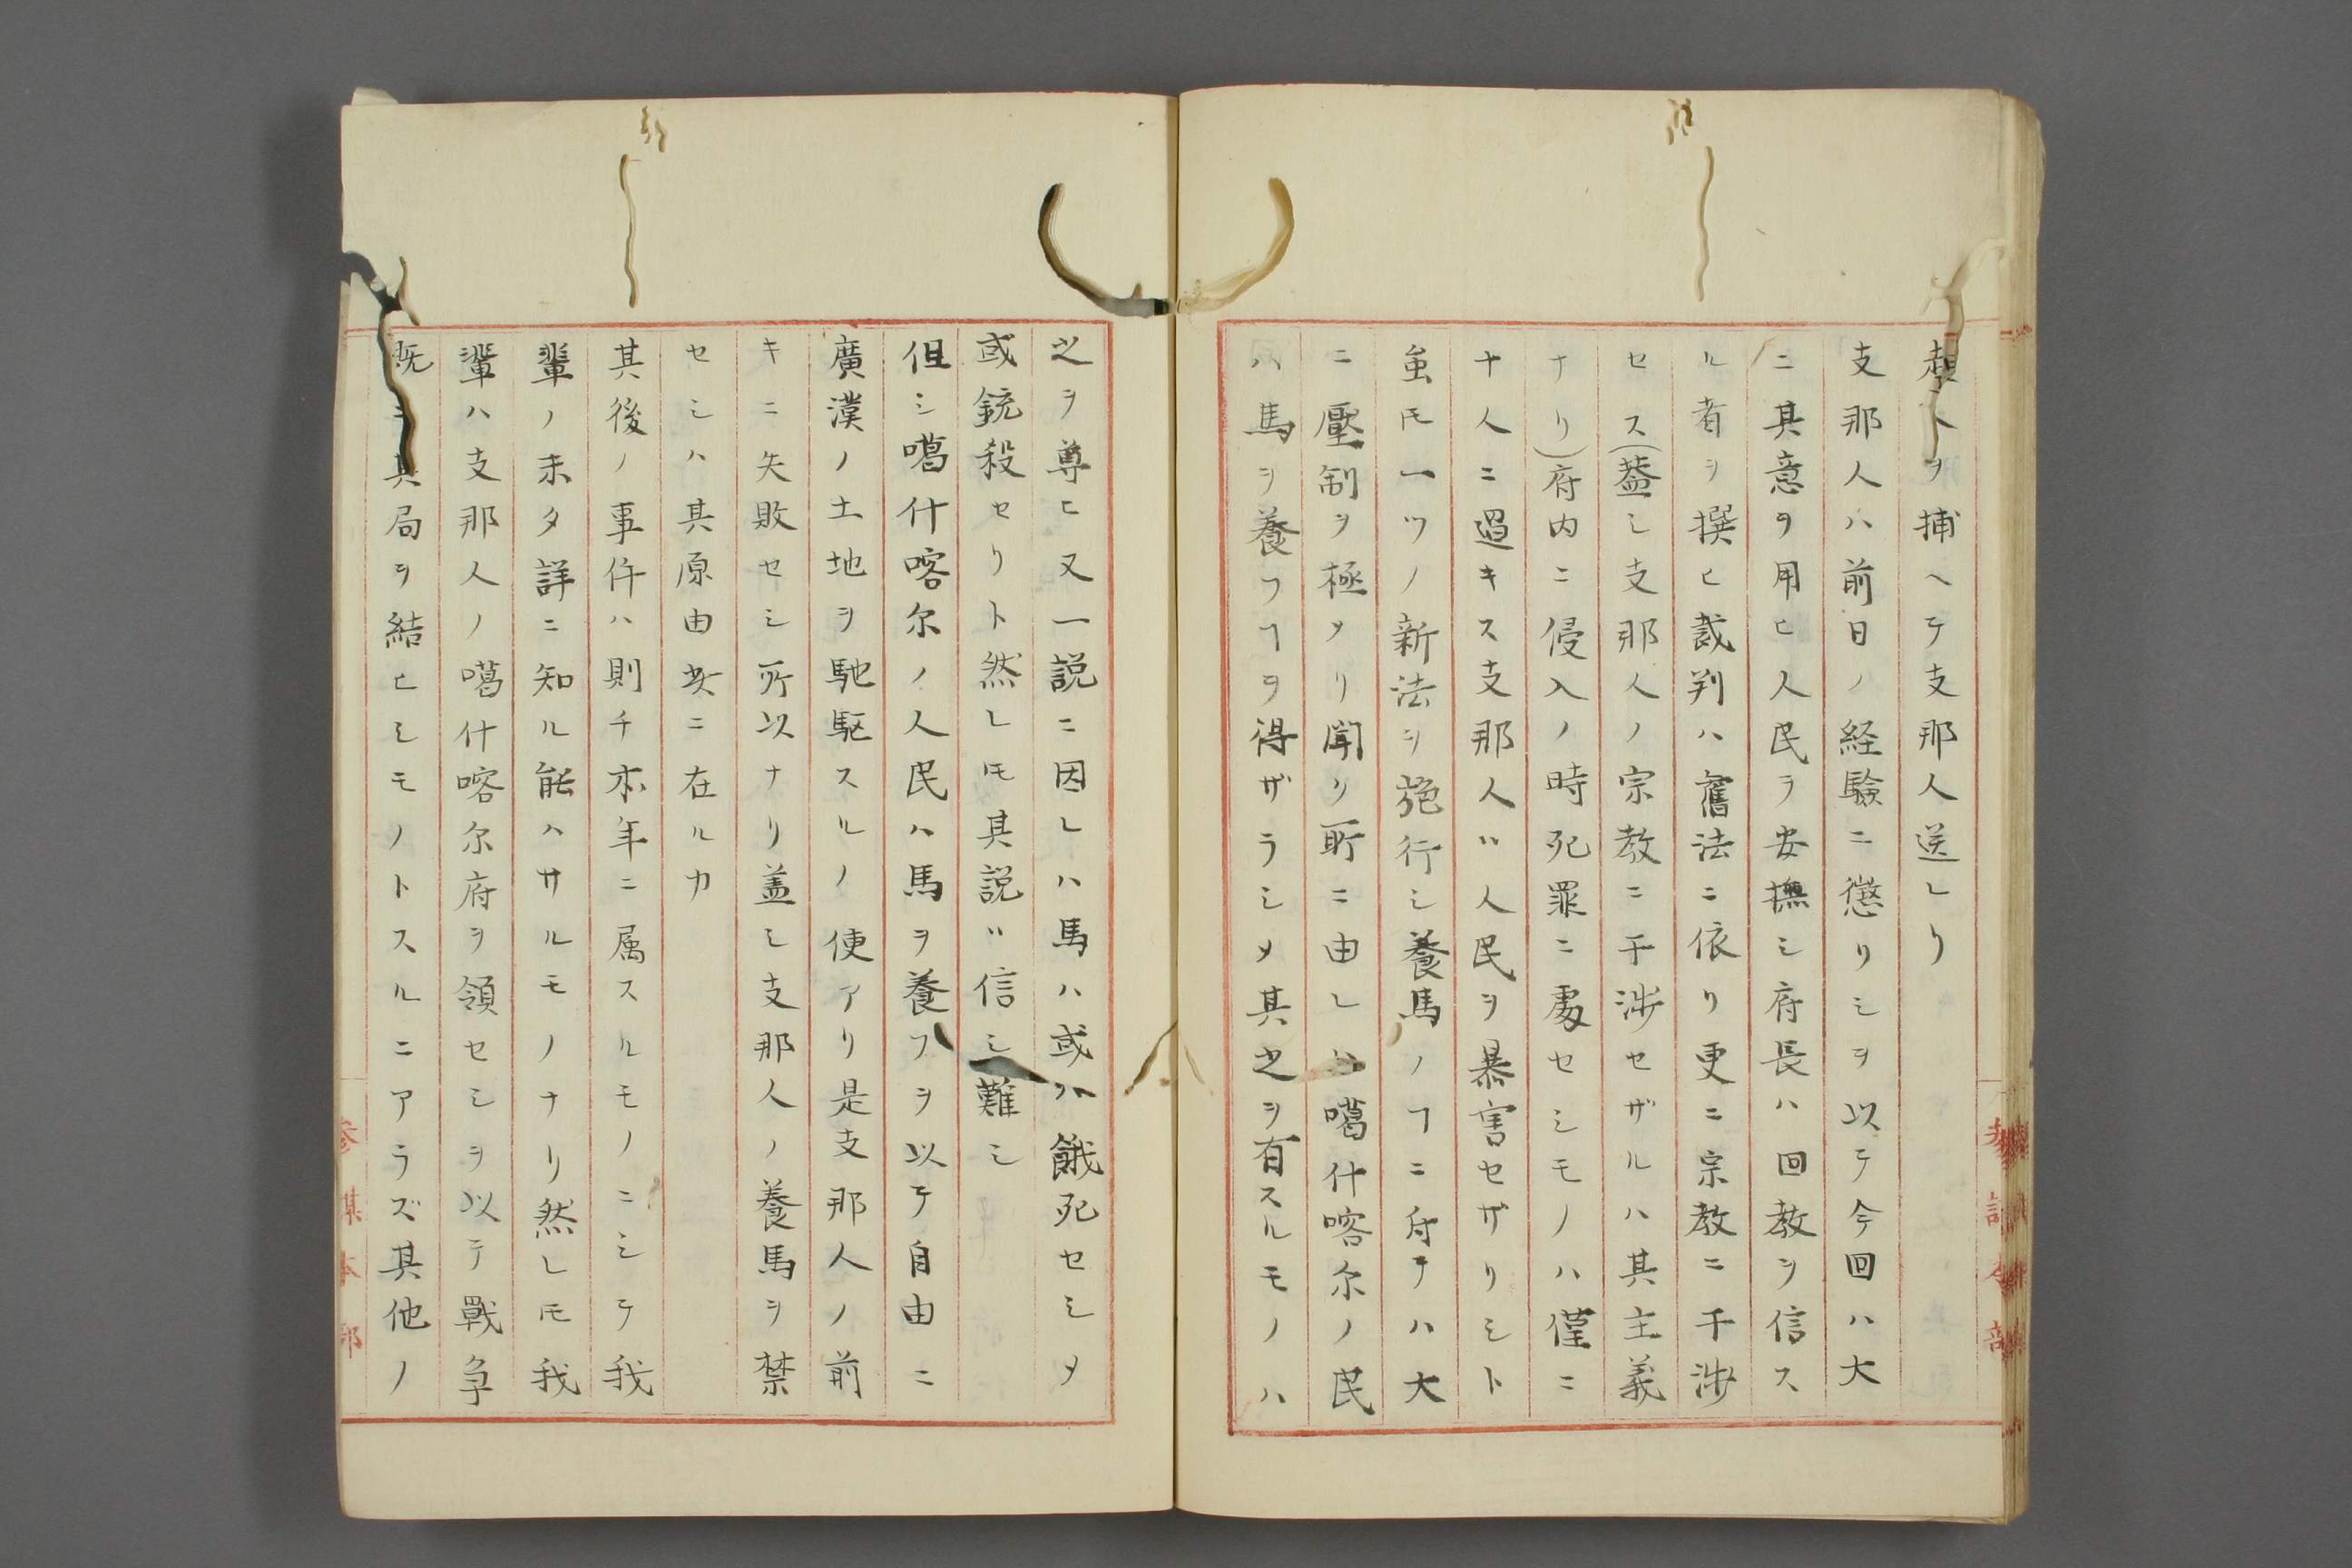 ヲ捕ヘテ支那人送レリ
支那人ハ前日ノ経験ニ懲リシヲ以テ今回ハ大
ニ其意ヲ用ヒ人民ヲ安撫シ府長ハ回教ヲ信ス
ル者ヲ撰ヒ裁判ハ舊法ニ依リ更ニ宗教ニ干渉
セス(蓋シ支那人ノ宗教ニ干渉セザルハ其主義
ナリ)府内ニ侵入ノ時死罪ニ處セシモノハ僅ニ
十人ニ過キス支那人ハ人民ヲ暴害セザリシト
虽𪜈一ツノ新法ヲ施行シ養馬ノヿニ付テハ大
ニ壓制ヲ極メリ聞ク所ニ由レハ噶什喀尔ノ民
ハ馬ヲ養フヿヲ得ザラシメ其之ヲ有スルモノハ
之ヲ尊ヒ又一説ニ因レハ馬ハ或ハ餓死セシメ
或銃殺セリト然レ𪜈其説ハ信シ難シ
但シ噶什喀尔ノ人民ハ馬ヲ養フヲ以テ自由ニ
廣漠ノ土地ヲ馳駆スルノ便アリ是支那人ノ前
キニ失敗セシ所以ナリ盖シ支那人ノ養馬ヲ禁
セシハ其原由玆ニ在ルカ
其後ノ事件ハ則チ本年ニ属スルモノニシテ我
輩ノ未タ詳ニ知ル能ハサルモノナリ然レ𪜈我
輩ハ支那人ノ噶什喀尔府ヲ領セシヲ以テ戰争
既ニ其局ヲ結ヒシモノトスルニアラズ其他ノ
参謀本部